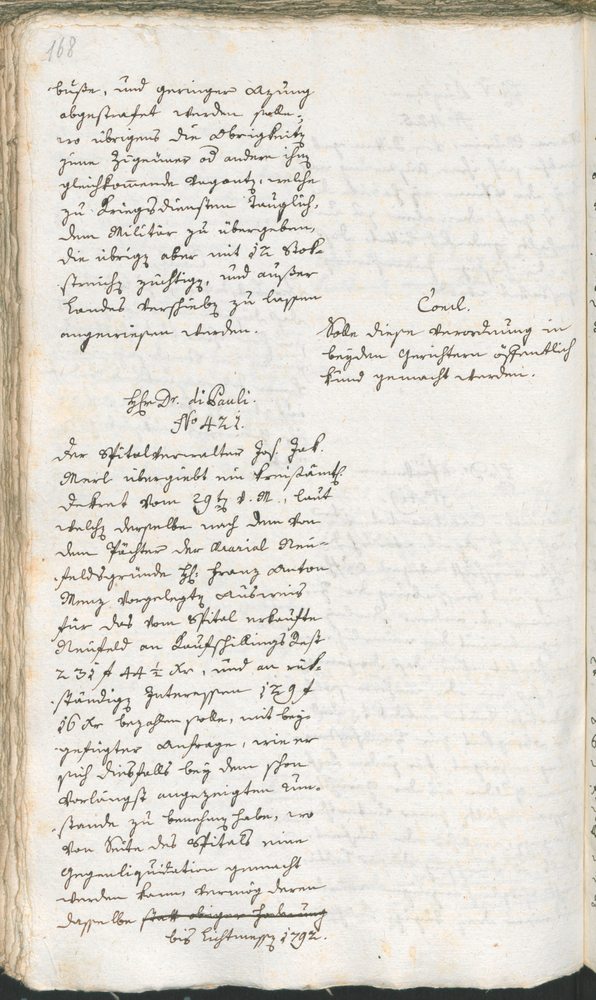 168
buße, und geringer Azung
abgestrafet werden solle,
wo übrigens die Obrigkeitℨ
jene Zigeüner od andere ihnℨ
gleichkommende Vagantℨ, welche
zu Kriegsdiensten tauglich,
dem Militär zu übergeben,
die übrigℨ aber mit 12 Stok¬
streichℨ züchtigℨ, und außer
Landes verschiebℨ zu lassen
angewiesen werden.
Concl.
Solle diese Verordnung in
beyden Gerichtern öffentlich
kund gemacht werden.
Hr Dr. di Pauli.
No 421.
Der Spitalverwalter Jos. Jak.
Merl übergiebt ein kreisämtl.
Dekret vom 29tℨ v. M., laut
welchℨ derselbe nach dem von
dem Pächter der Aerarial Neu¬
feldsgründe H: Franz Anton
Menz vorgelegtℨ Ausweis
für das vom Spital erkaufte
Neufeld an Kaufschillings Rest
231 f 44 ½ Xr, und an rük¬
ständigℨ Interessen 129 f
16 Xr bezahlen solle, mit bey¬
gefügter Anfrage, wie er
sich diesfalls bey dem schon
vorlängst angezeigten Um¬
stande zu benehmℨ habe, wo
von Seite des Spitals eine
Gegenliquidation gemacht
werden kann, vermög deren
dasselbe statt obiger
bis Lichtmessℨ 1792.